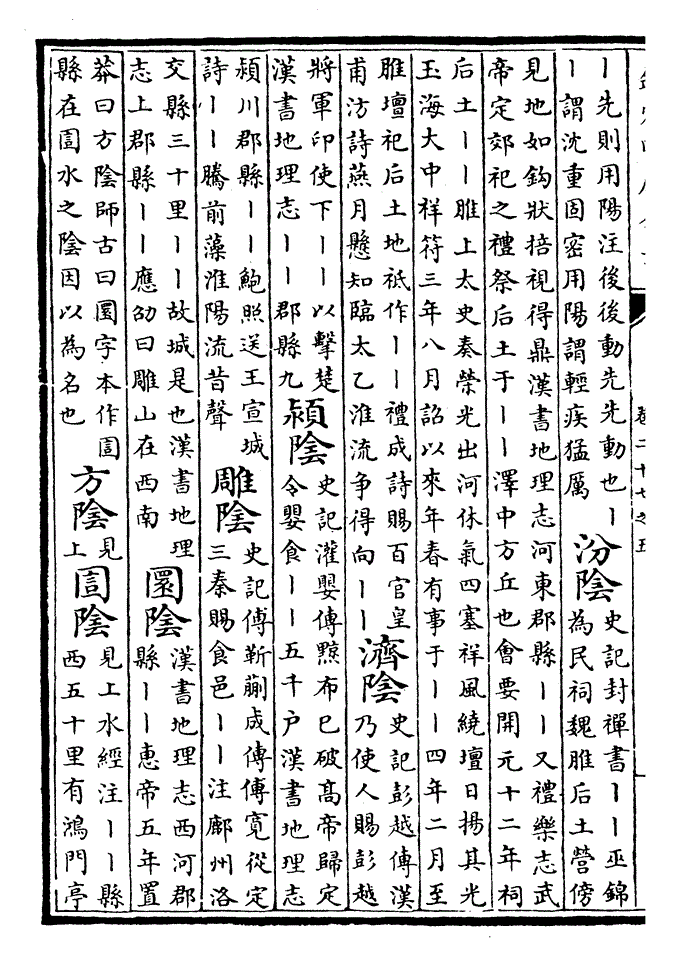 卷二十七之五
丨先則用陽注後後動先先動也丨
丨謂沈重固密用陽謂輕疾猛厲
汾陰
史記封禪書丨丨巫錦
為民祠魏脽后土營傍
見地如鈎狀掊視得鼎漢書地理志河東郡縣丨丨又禮樂志武
帝定郊祀之禮祭后土于丨丨澤中方丘也會要開元十二年祠
后土丨丨脽上太史奏榮光出河休氣四塞祥風繞壇日揚其光
玉海大中祥符三年八月詔以來年春有事于丨丨四年二月至
脽壇祀后土地祇作丨丨禮成詩賜百官皇
甫汸詩燕月懸知臨太乙淮流争得向丨丨
濟陰
史記彭越傳漢
乃使人賜彭越
將軍印使下丨丨以擊楚
漢書地理志丨丨郡縣九
潁陰
史記灌嬰傳黥布已破髙帝歸定
令嬰食丨丨五千户漢書地理志
潁川郡縣丨丨鮑照送王宣城
詩丨丨騰前藻淮陽流昔聲
雕陰
史記傅靳蒯成傳傅寬從定
三秦賜食邑丨丨注鄜州洛
交縣三十里丨丨故城是也漢書地理
志上郡縣丨丨應劭曰雕山在西南
圜陰
漢書地理志西河郡
縣丨丨惠帝五年置
莽曰方陰師古曰圜字本作圁
縣在圁水之陰因以為名也
方陰
見
上
圁陰
見上水經注丨丨縣
西五十里有鴻門亭